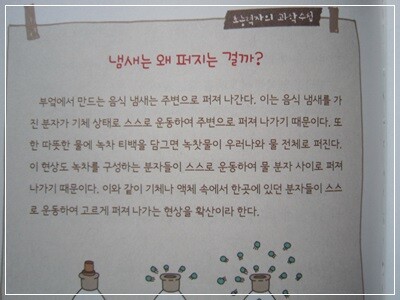 초능력자의 과학수업
냄새는 왜 퍼지는 걸까?
부엌에서 만드는 음식 냄새는 주변으로 퍼져 나간다. 이는 음식 냄새를 가
진 분자가 기체 상태로 스스로 운동하여 주변으로 퍼져 나가기 때문이다. 또
한 따뜻한 물에 녹차 티백을 담그면 녹찻물이 우러나와 물 전체로 퍼진다.
이 현상도 녹차를 구성하는 분자들이 스스로 운동하여 물 분자 사이로 퍼져
나가기 때문이다. 이와 같이 기체나 액체 속에서 한곳에 있던 분자들이 스스
로 운동하여 고르게 퍼져 나가는 현상을 확산이라 한다.